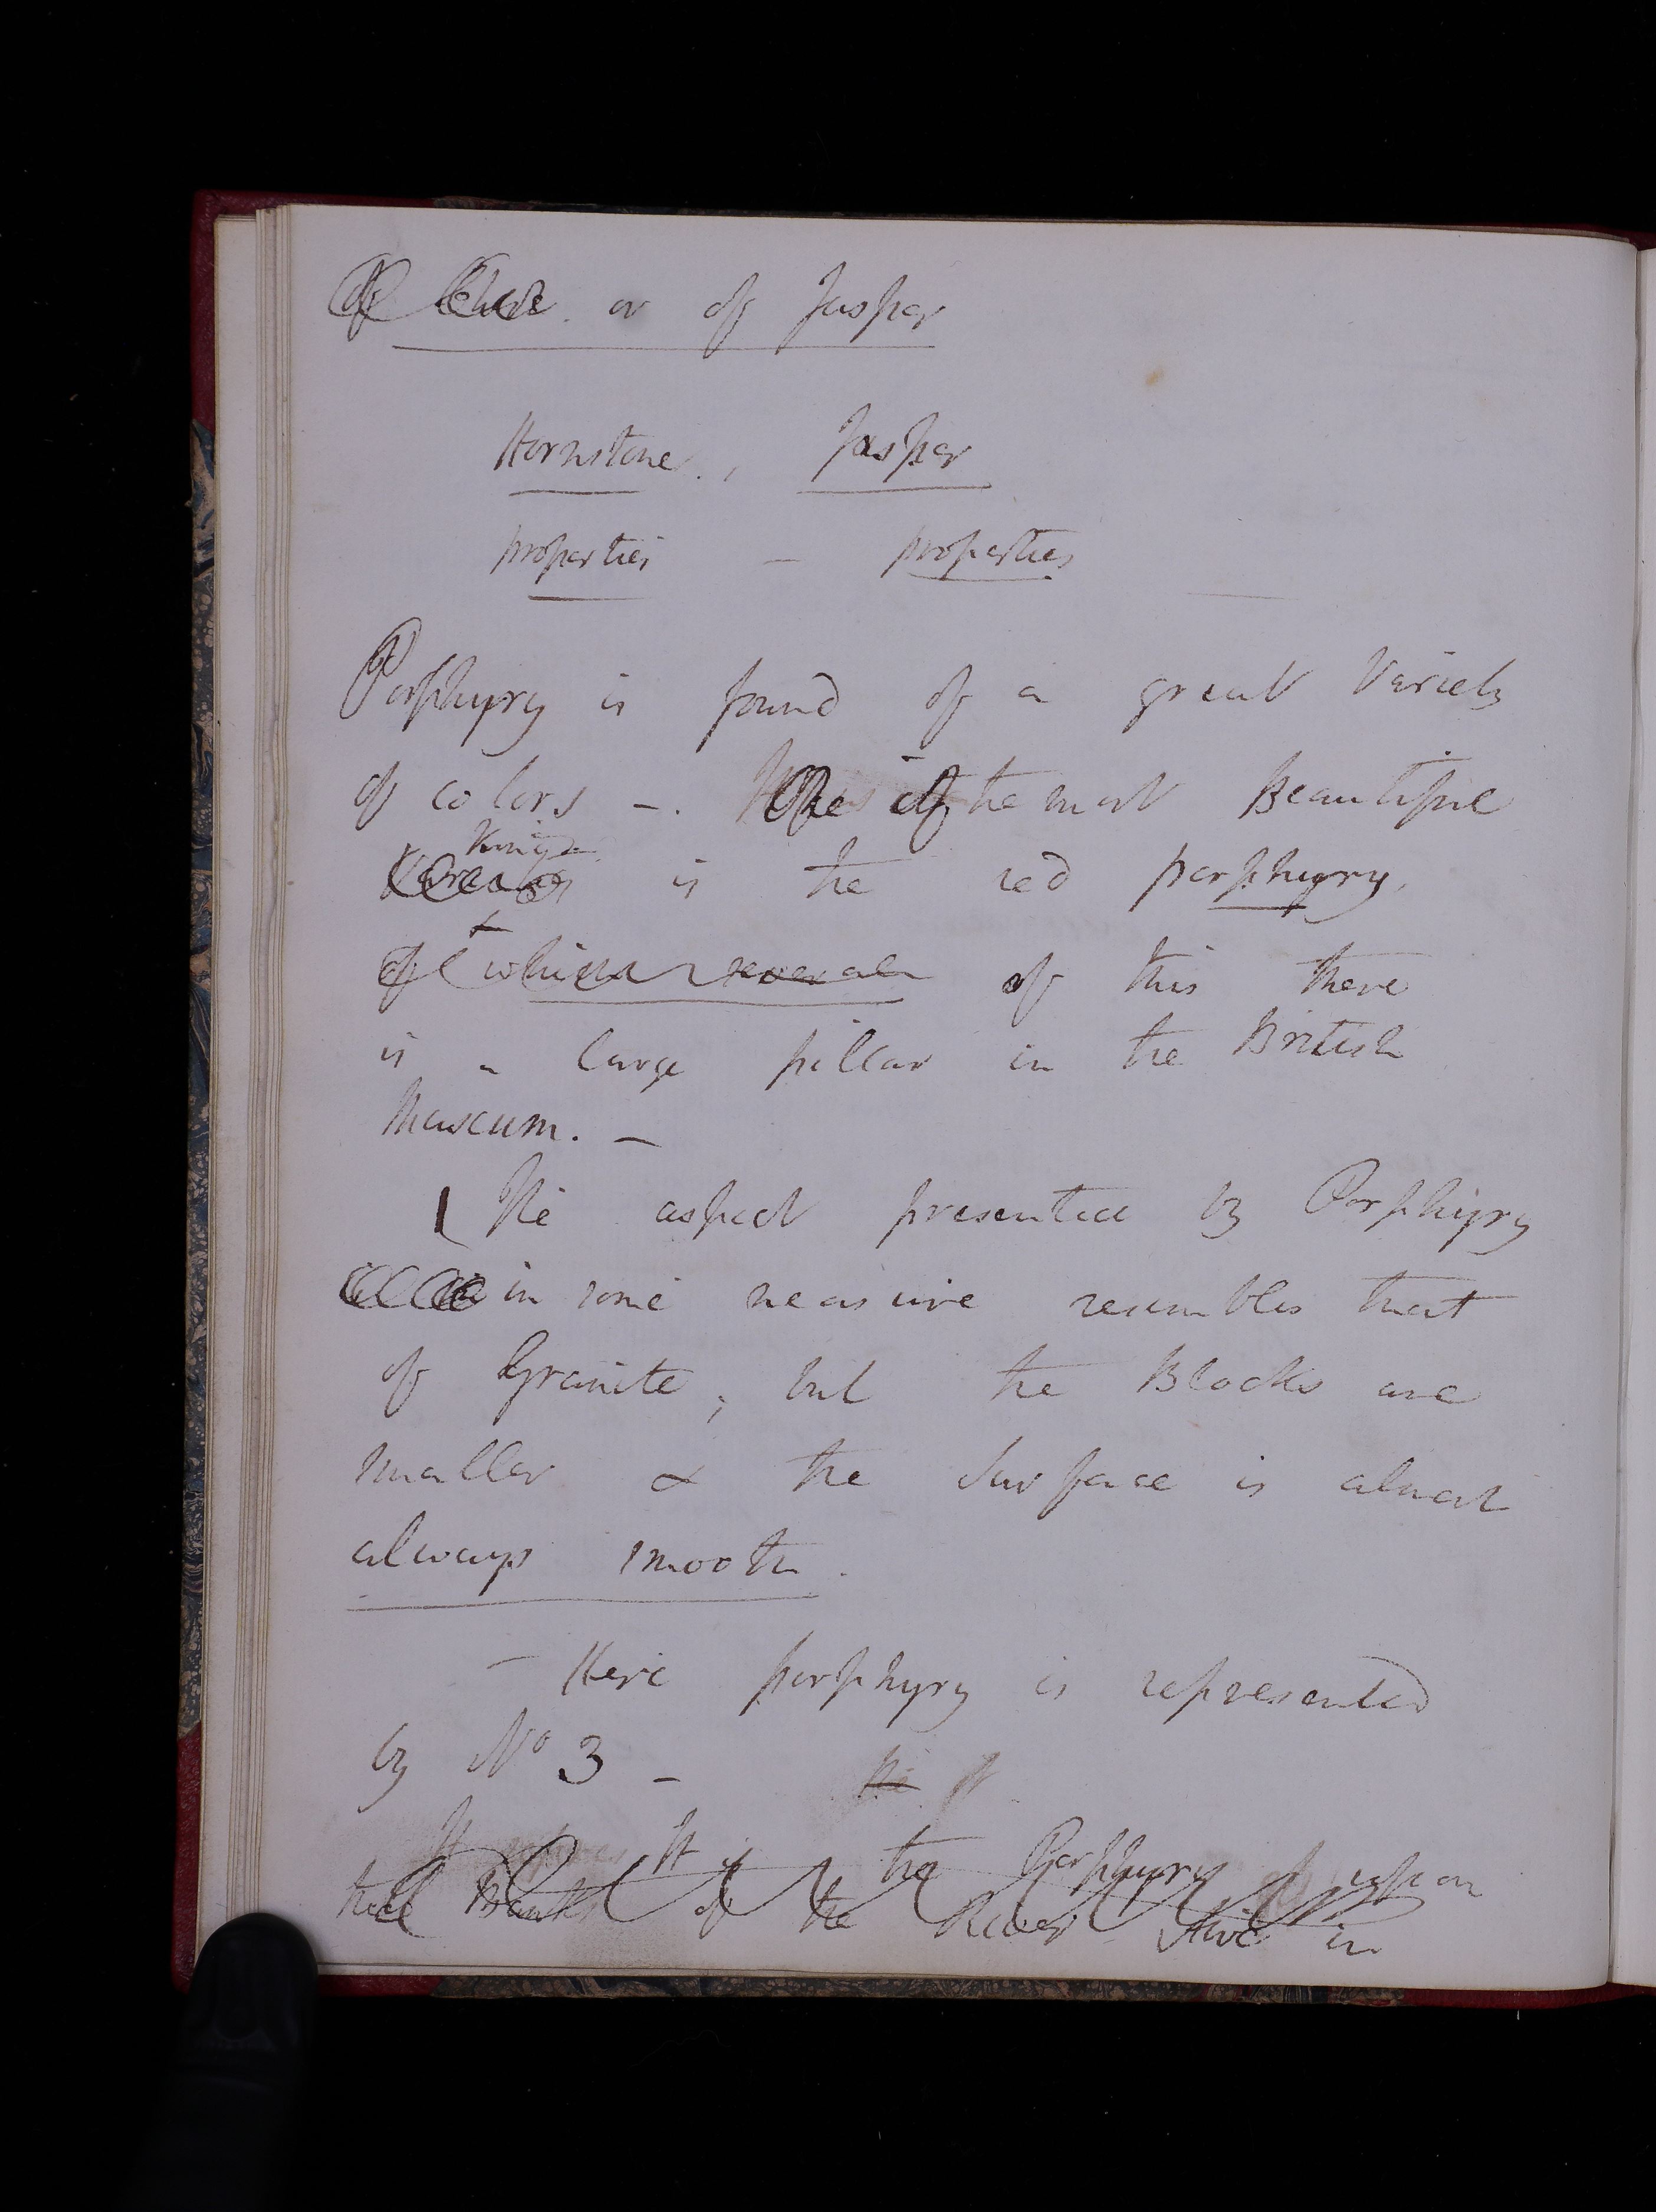 or of Jasper
Hornstone. , Jasper
properties — properties
Porphyry is found of a great Variety
of colors —. One of the most Beautiful
Kinds
is the red porphyry,
of which several of this there
is a large pillar in the British
Museum. —
The aspect presented by Porphyry
in some measure resembles that
of Granite; but the Blocks are
smaller & the Surface is almost
always smooth.
— Here porphyry is represented
by No 3 —
It is the Porphyry upon
the Banks of the River in